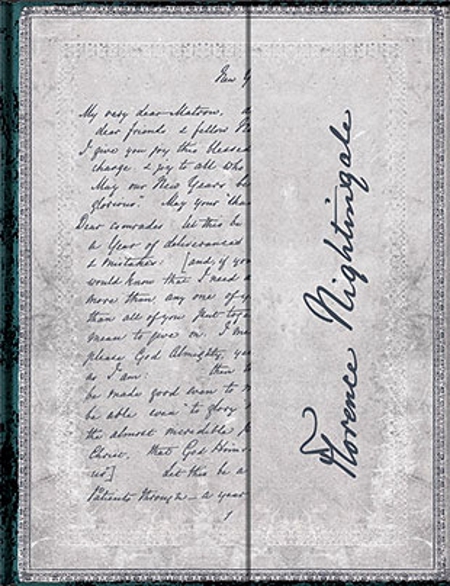 New Y
My very dear Matron,
dear friends & fellow
I give you joy this blessed
change & joy to all who
May our New Years be
glorious" May your "char
Dear comrades let this be
a Year of deliverances
& mistakes: [and, if you
would know that I need
more than any one of y
than all of you put toge
mean to give on. I me
please God Almighty, ye
as I am: then
be made good even to
be able even to glory
the almost incredible
Christ, that God
us] Let this be a
Patients through - a year
1
Florence Nightingale